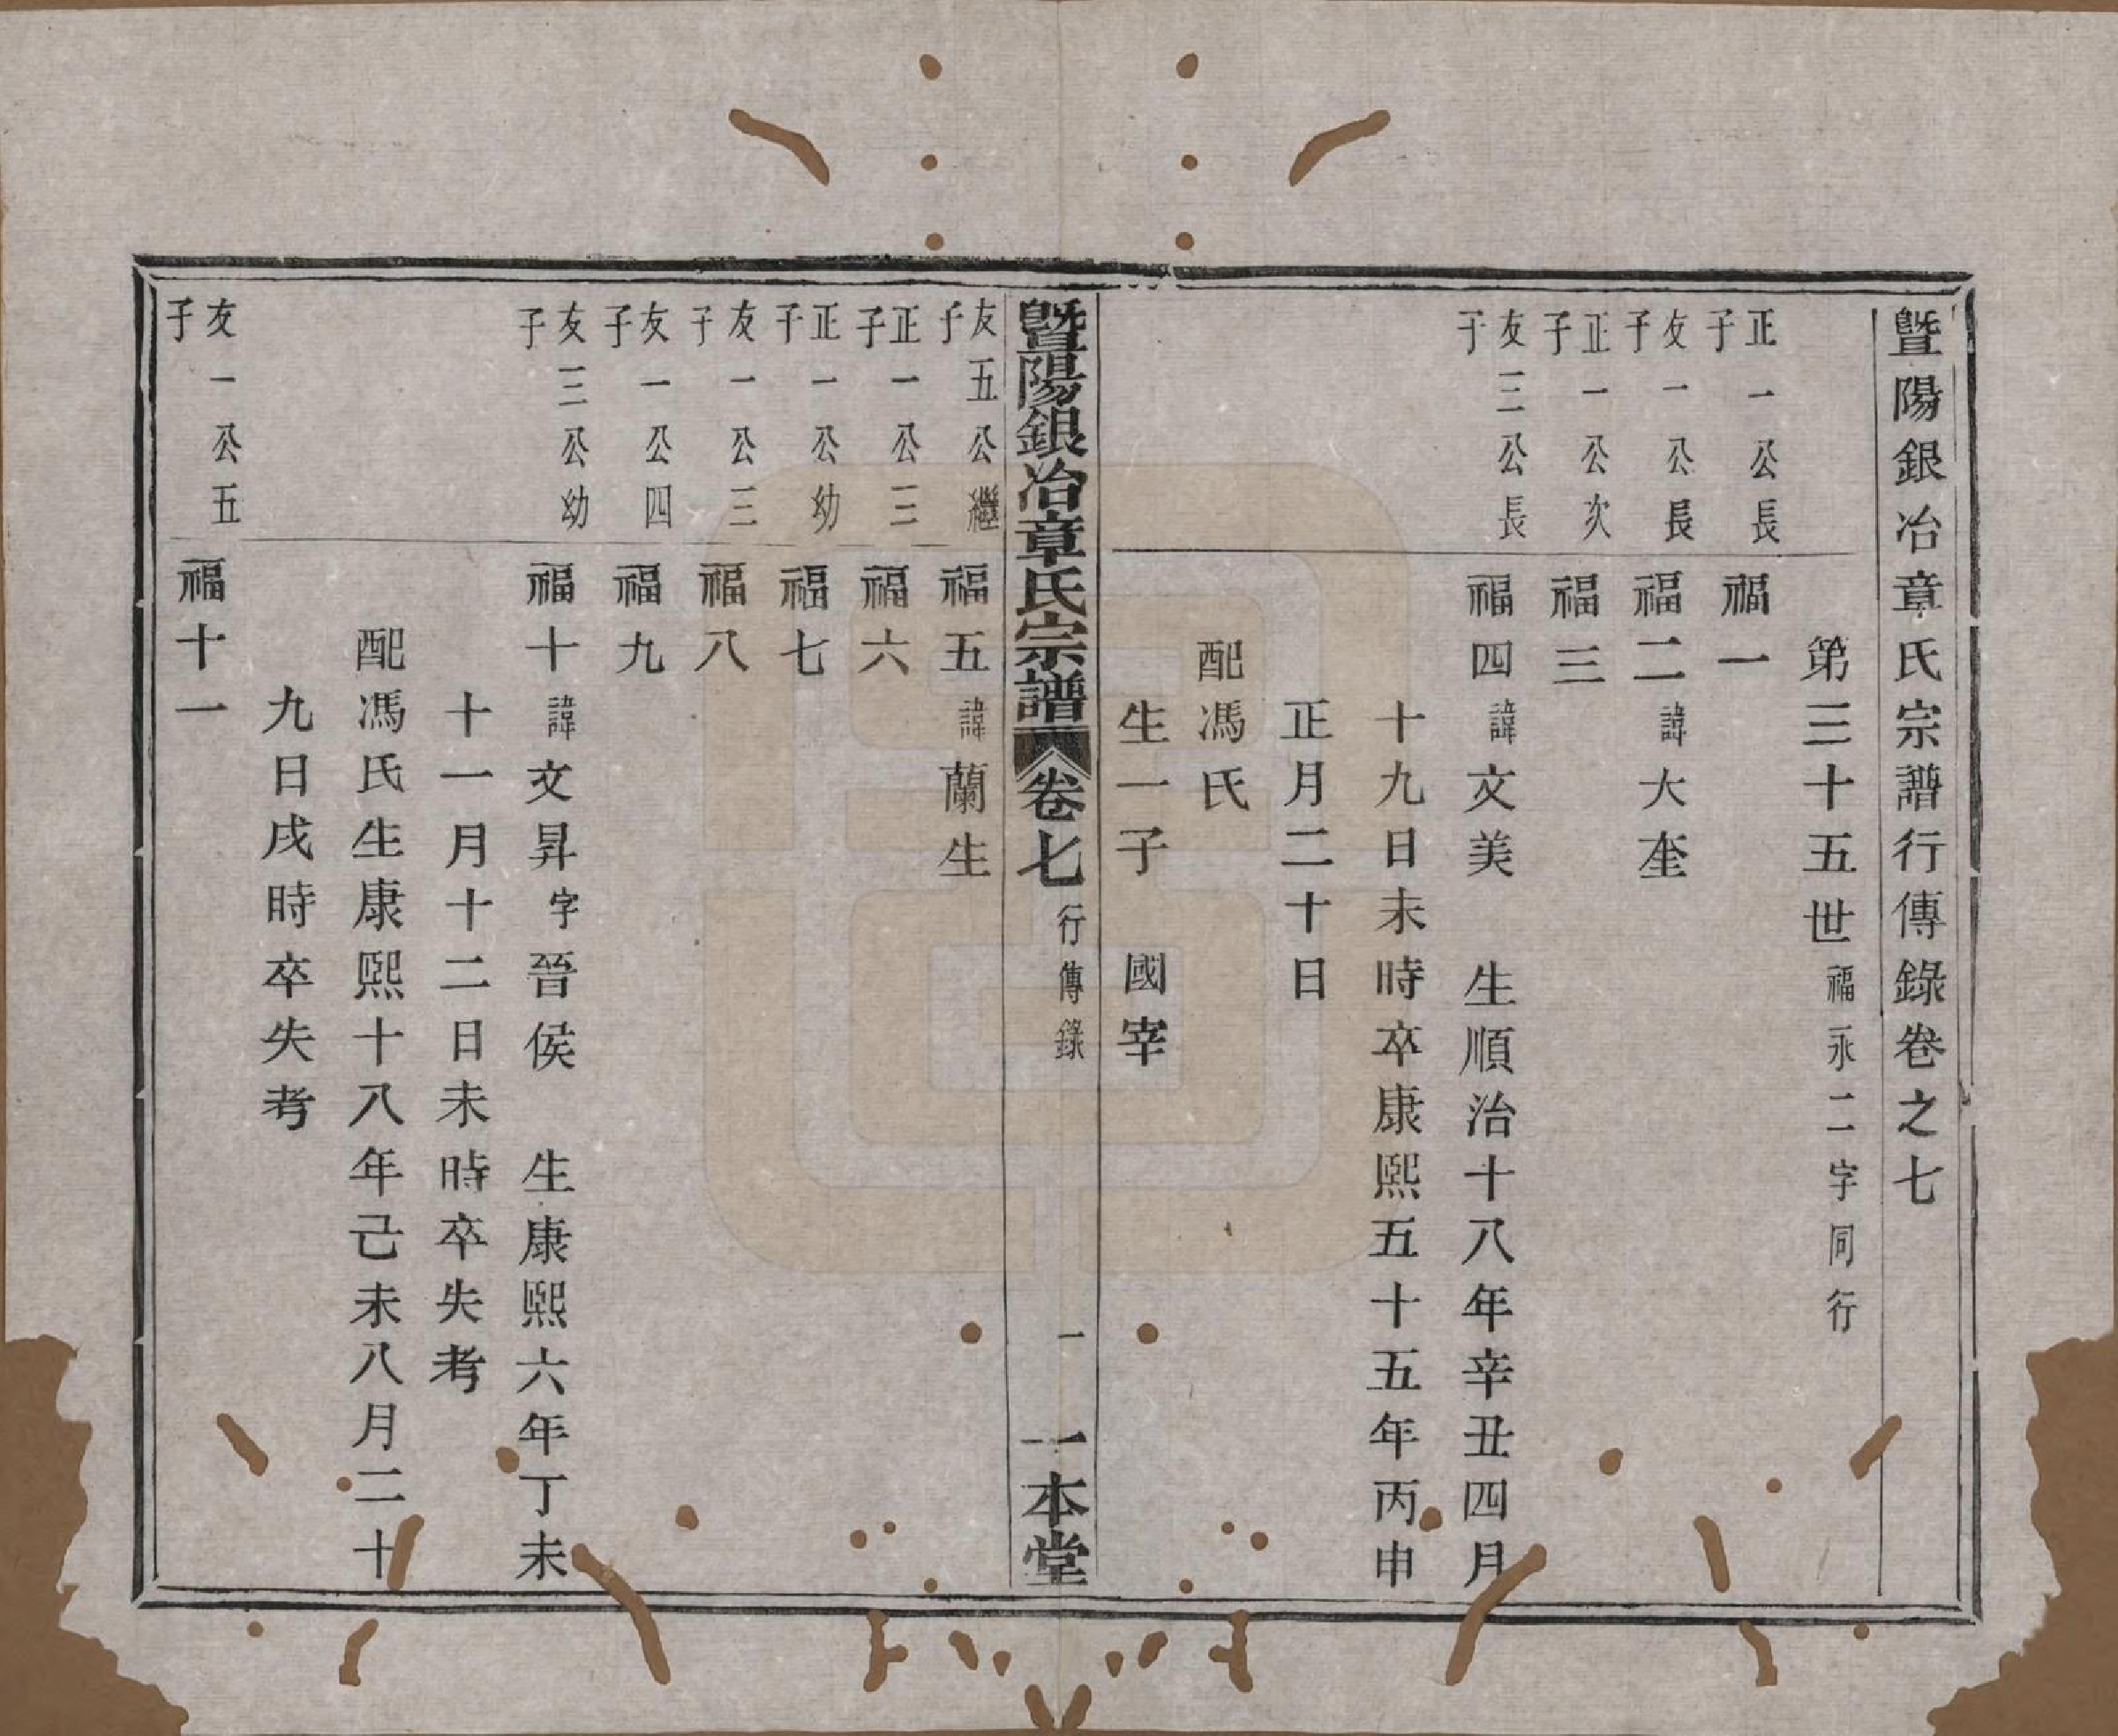 暨陽銀冶章氏宗譜行傳錄卷之七
第三十五世福永二字同行
正一公長子
福一
友一公長子
福二諱大奎
正一公次子
福三
友三公長子
福四諱文美 生順治十八年辛丑四月
十九日未時卒康熙五十五年丙申
正月二十日
配馮氏
生一子 國宰
暨陽銀冶章氏宗譜 卷七 行傳錄 一 一本堂
友五公繼子
福五諱蘭生
正一公三子
福六
正一公幼子
福七
友一公三子
福八
友一公四子
福九
友三公幼子
福十諱文昇字晉侯 生康熙六年丁未
十一月十二日未時卒失考
配馮氏生康熙十八年己未八月二十
九日戌時卒失考
友一公五子
福十一